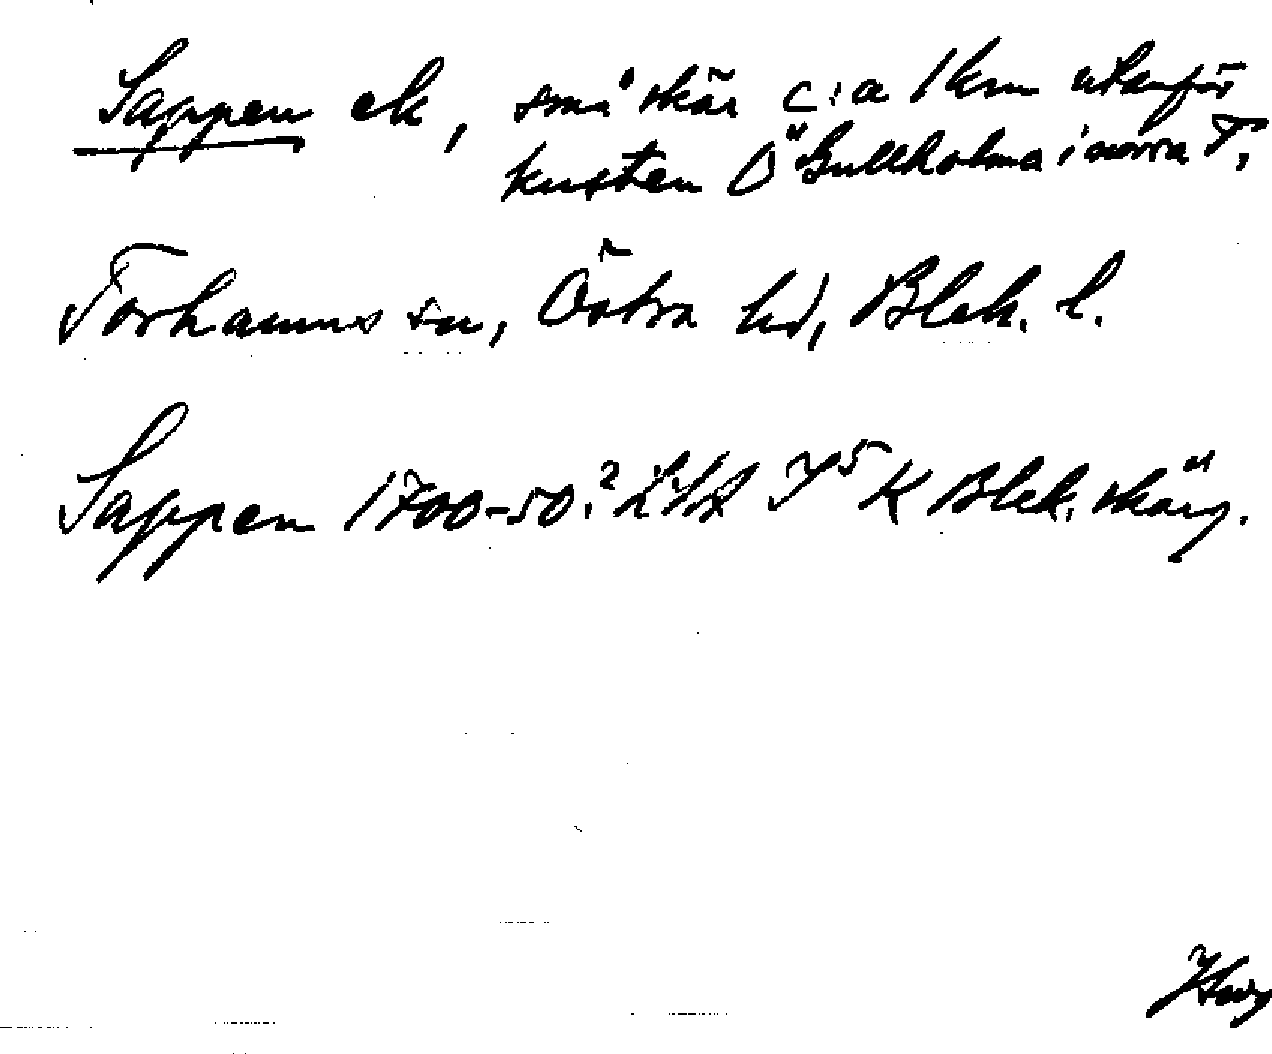 Sappen ek, små skär c:a 1 km utanför
kusten Ö Gullholma i norra T,
Torhamns sn, Östra hd, Blek. l.
Sappen 1700-50? K Blek. skärg.